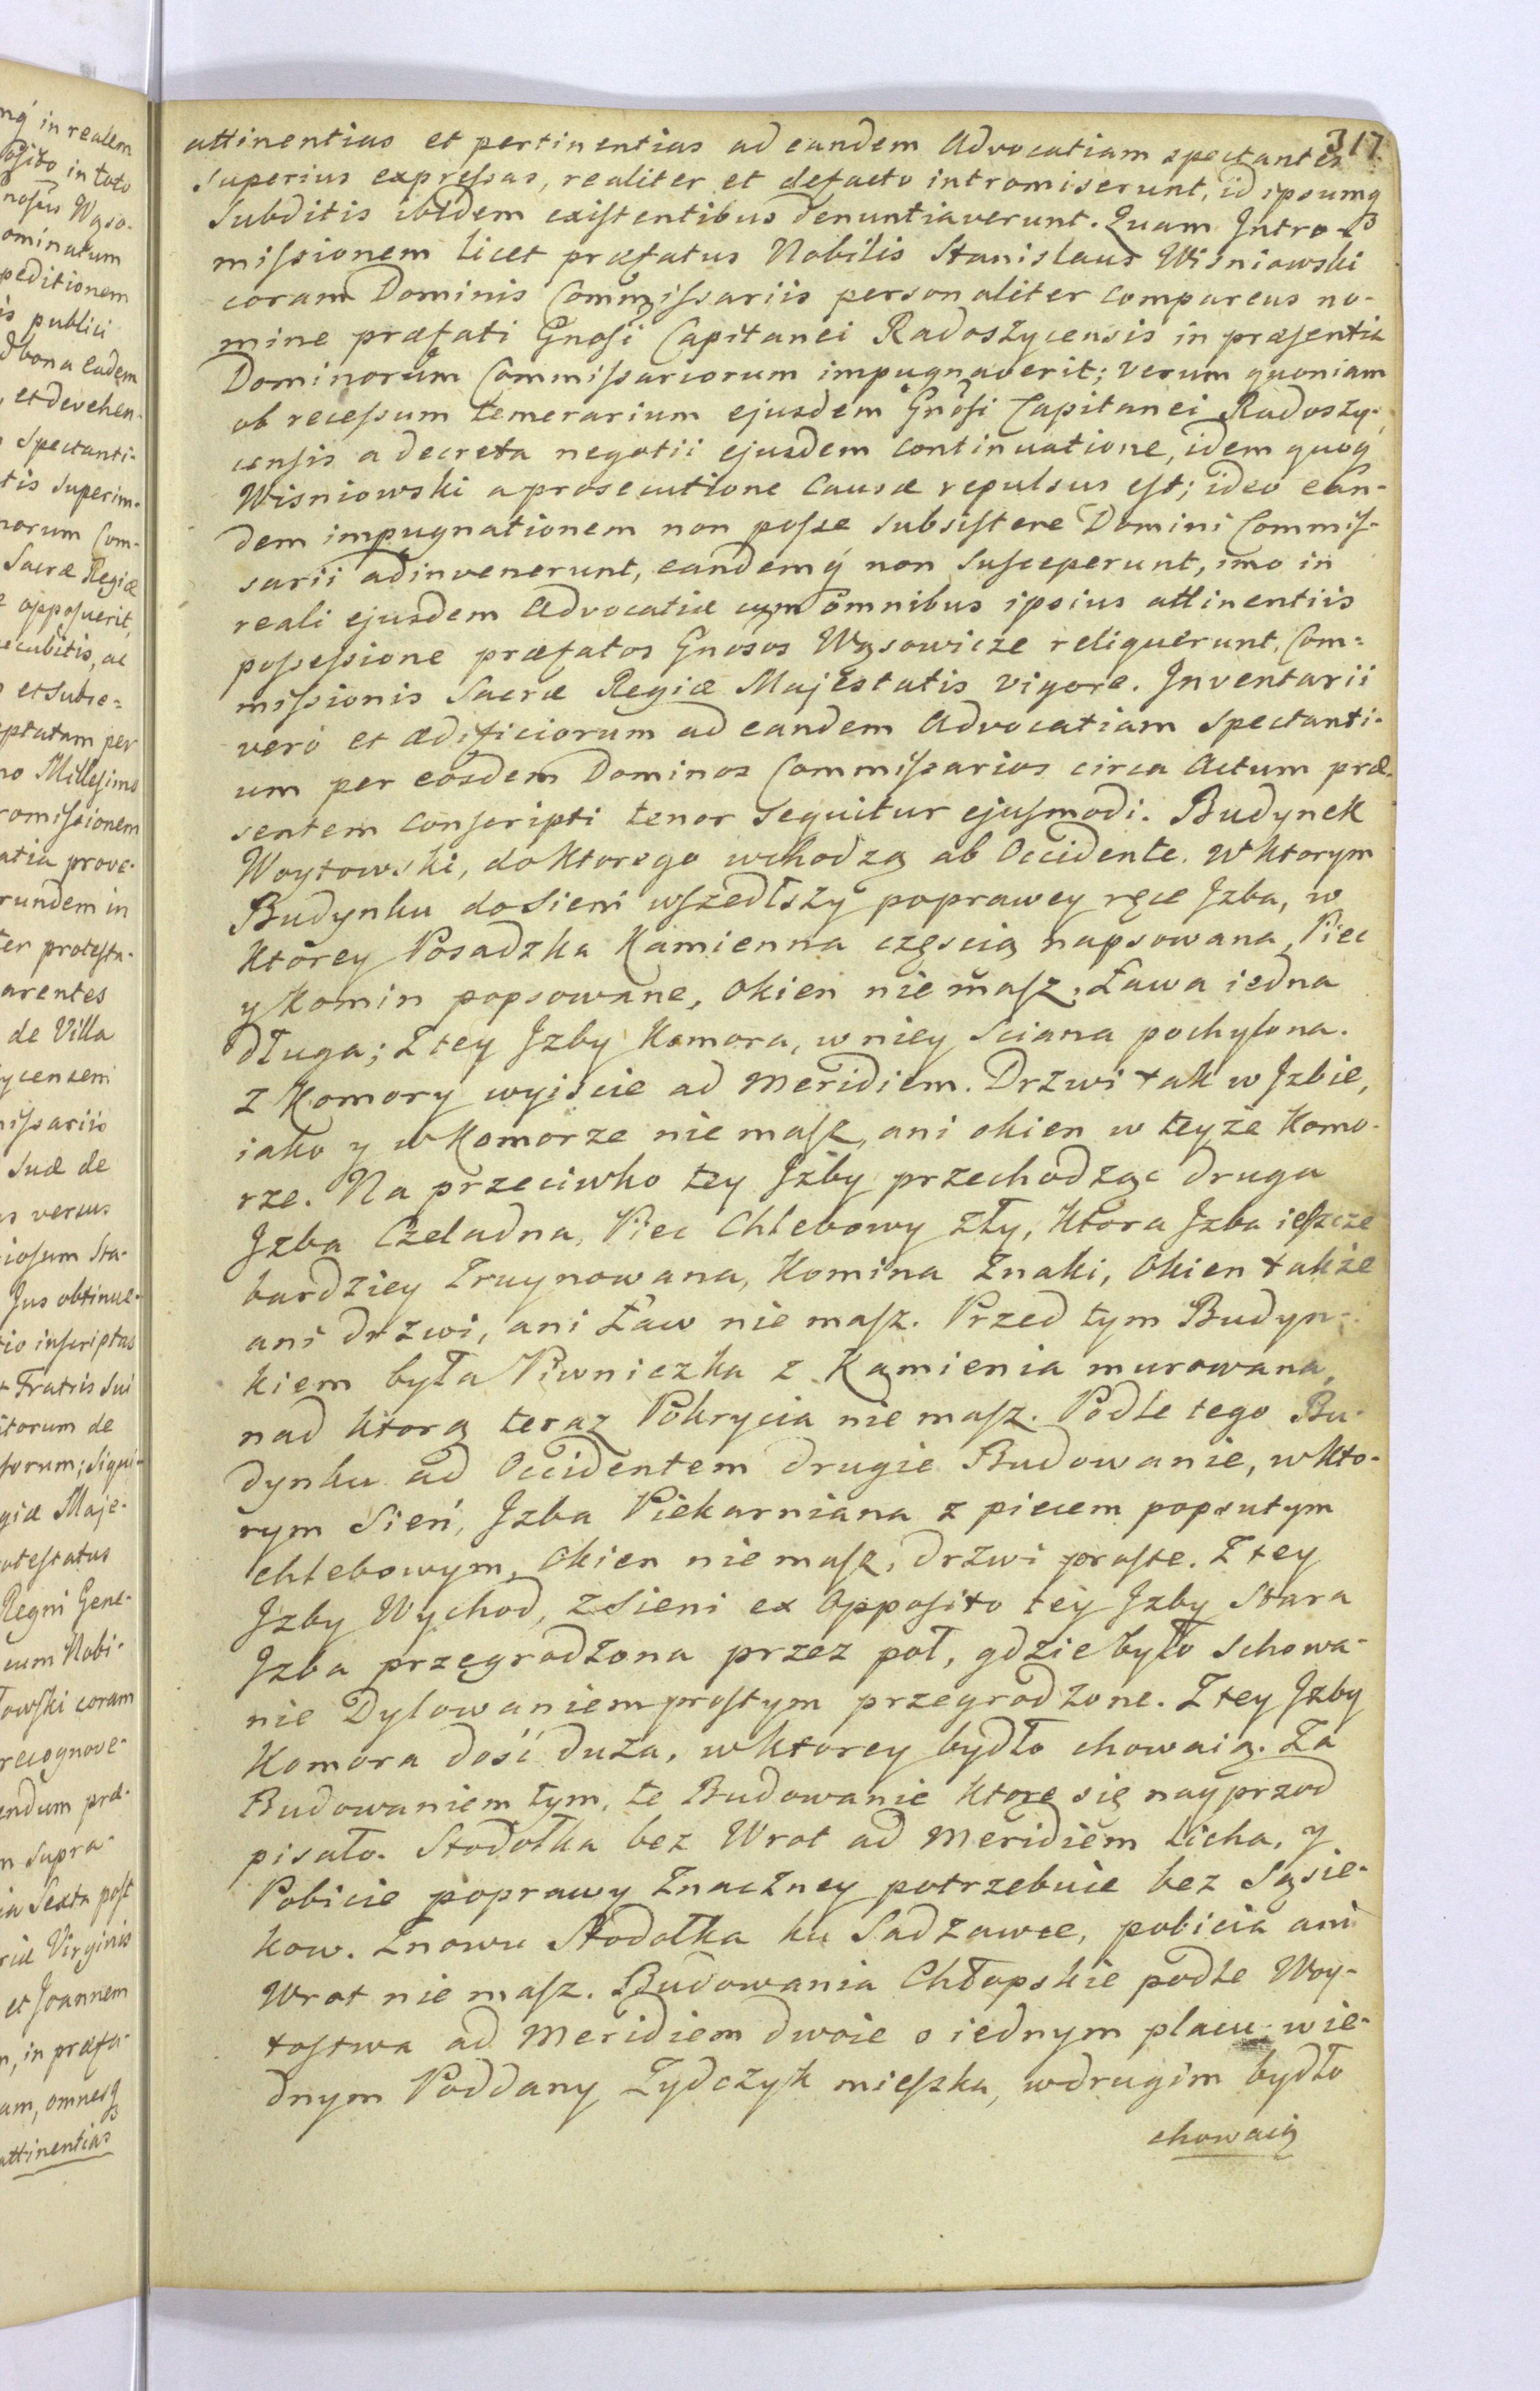 317
attinentias et pertinentias ad eandem Advocatiam spectantes
superius expreſsas, realiter et defacto intromiserunt, id ipsumq3
Subditis ibidem exiſtentibus denuntiaverunt. Quam Intro-
miſsionem licet præfatus Nobilis Stanislaus Wisniowski
coram Dominis Commiſsariis personaliter compareus no-
mine præfati Gnoſi Capitanei Radoszycensis in præsentia
Dominorum Commiſsariorum impugnaverit; verum quoniam
ob receſsum temerarium ejusdem Gnoſi Capitanei Radoszy-
censis a decreta negotii ejusdem continuatione, idem quoq
Wisniowski a prosecutione Causæ repulsus eſt; ideo ean-
dem impugnationem non poſse subsiſtere Domini Commiſ-
sarii adinvenerunt, eandemq́ non Suſceperunt, imo in
reali ejusdem Advocatiæ cum omnibus ipsius attinentiis
poſseſsione præfatos Gnosos Wąsowicze reliquerunt, Com=
miſsionis Sacræ Regiæ Majestatis vigore. Inventarii
vero et ædificiorum ad eandem Advocatiam Spectanti-
um per eosdem Dominos Commiſsarios circa Actum præ-
sentem conſcripti tenor sequitur ejuſmodi. Budynek
Woytowski, doktorego wchodzą ab Occidente. Wktorym
Budynku do sieni wſzedſzy poprawey ręce Izba, w
Ktorey Posadzka Kamienna częscią napsowana, Piec
y Komin popsowane, Okien nie maſz, Ława iedna
długa; Z tey Izby Komora, w niey Sciana pochylona.
Z Komory wyiscie ad Meridiem. Drzwi tak w Izbie,
iako y w Komorze nie maſz, ani okien w teyże Komo-
rze. Na przeciwko tey Izby przechodząc druga
Izba Czeladna, Piec Chlebowy zły, Ktora Izba ieſzcze
bardziey Zruynowana, Komina Znaki, Okien także
ani drzwi, ani Ław nie maſz. Przed tym Budyn-
kiem była Piwniczka z Kamienia murowana,
nad ktorą teraz Pokrycia nie maſz. Podle tego Bu-
dynku ad Occidentem drugie Budowanie, wkto-
rym Sień, Izba Piekarniana z piecem popsutym
chlebowym, Okien nie maſz, drzwi proſte. Z tey
Izby Wychod, z sieni ex Oppoſito tey Izby Stara
Izba przegrodzona przez poł, gdzie było schowa-
nie Dylowaniem proſtym przegrodzone. Z tey Izby
Komora dość duża, wktorey bydło chowaią. Za
Budowaniem tym, te Budowanie ktore się nayprzod
pisało. Stodołka bez Wrot ad Meridiem licha, y
Pobicie poprawy Znaczney potrzebuie bez Sąsie-
kow. Znowu Stodołka ku Sadzawce, pobicia ani
Wrot nie maſz. Budowania Chłopskie podle Woy-
toſtwa ad Meridiem dwoie o iednym placu w ie-
dnym Poddany Zydczyk mieſzka, wdrugim bydło
chowaią